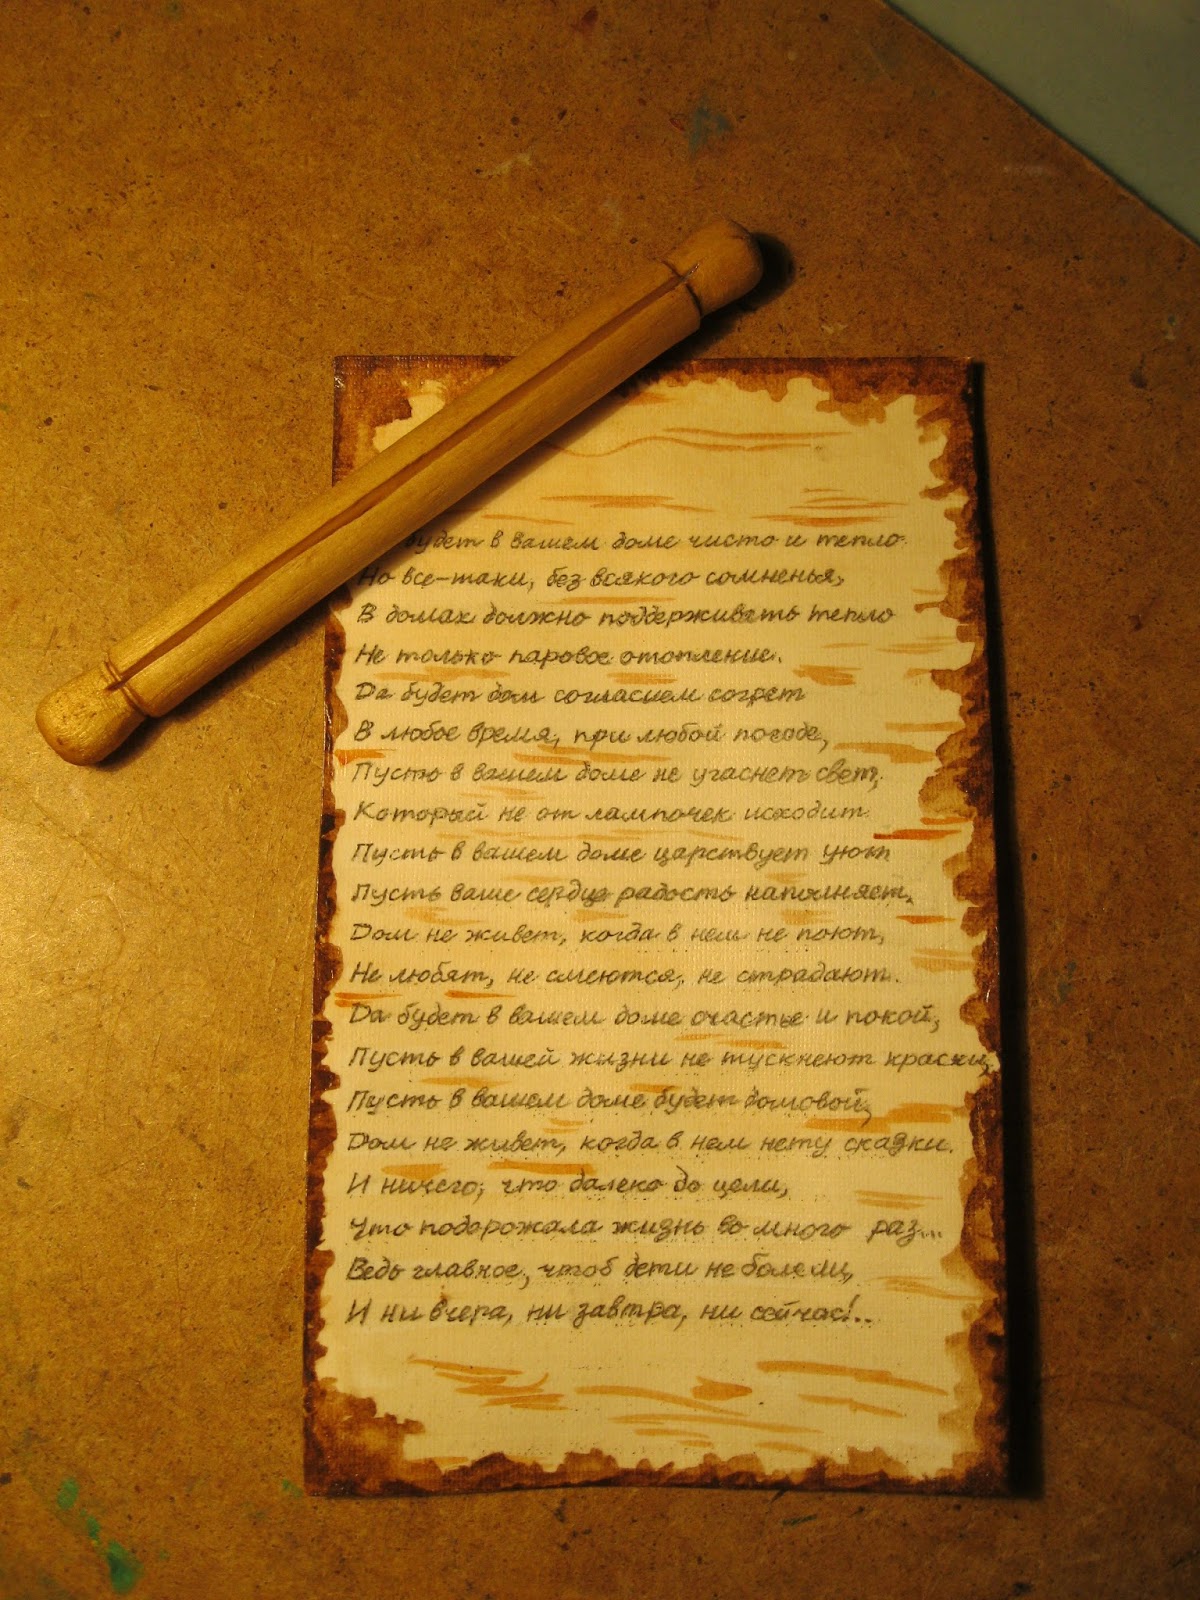 будет в вашем доме чисто и тепло.
Но все-таки, без всякого сомненья,
В домах должно поддерживать тепло
Не только паровое отопление.
Да будет дом согласием согрет
В любое время, при любой погоде,
Пусть в вашем доме не угаснет свет,
Который не от лампочек исходит.
Пусть в вашем доме царствует уют
Пусть ваше сердце радость наполняет,
Дом не живет, когда в нем не поют,
Не любят, не смеются, не страдают.
Да будет в вашем доме счастье и покой,
Пусть в вашей жизни не тускнеют краски,
Пусть в вашем доме будет домовой,
Дом не живет, когда в нем нету сказки.
И ничего, что далеко до цели,
Что подорожала жизнь во много раз...
Ведь главное, чтоб дети не болели,
И ни вчера, ни завтра, ни сейчас!..